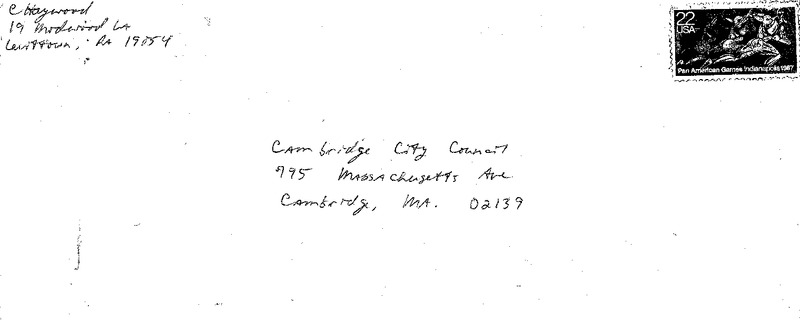 C Haywood
19 Modwood LA
Levittown, PA 19054
22
USA
Pan American Games Indianapolis 1987
Cambridge City Council
795 Massachusetts Ave
Cambridge, MA. 02139